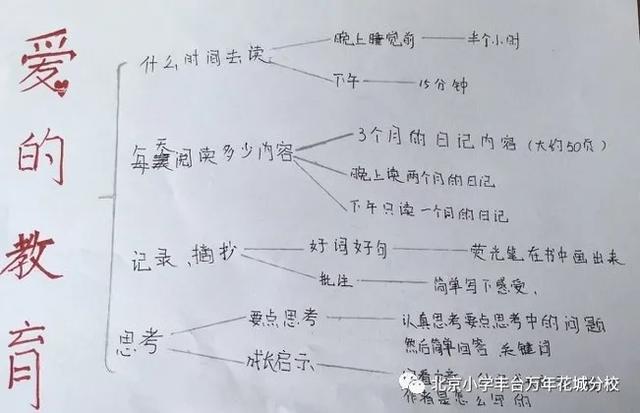 爱的教育
什么时间去读
晚上睡觉前 半个小时
下午 15分钟
每天阅读多少内容
3个月的日记内容(大约50页)
晚上读两个月的日记
下午只读一个月的日记
记录、摘抄
好词好句 荧光笔在书中画出来
批注 简单写下感受.
思考
要点思考 认真思考要点思考中的问题
然后简单回答 关键词
成长启示
作者是怎么写的
北京小学丰台万年花城分校